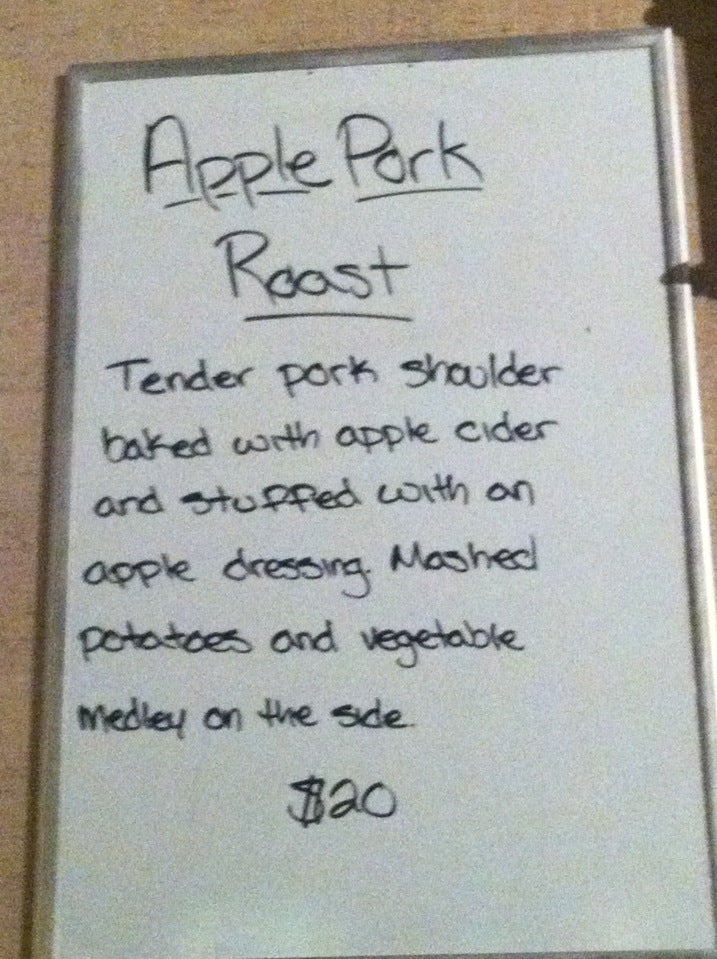 Apple Pork
Roast
Tender pork shoulder
baked with apple cider
and stuffed with an
apple dressing. Mashed
potatoes and vegetable
medley on the side.
$20